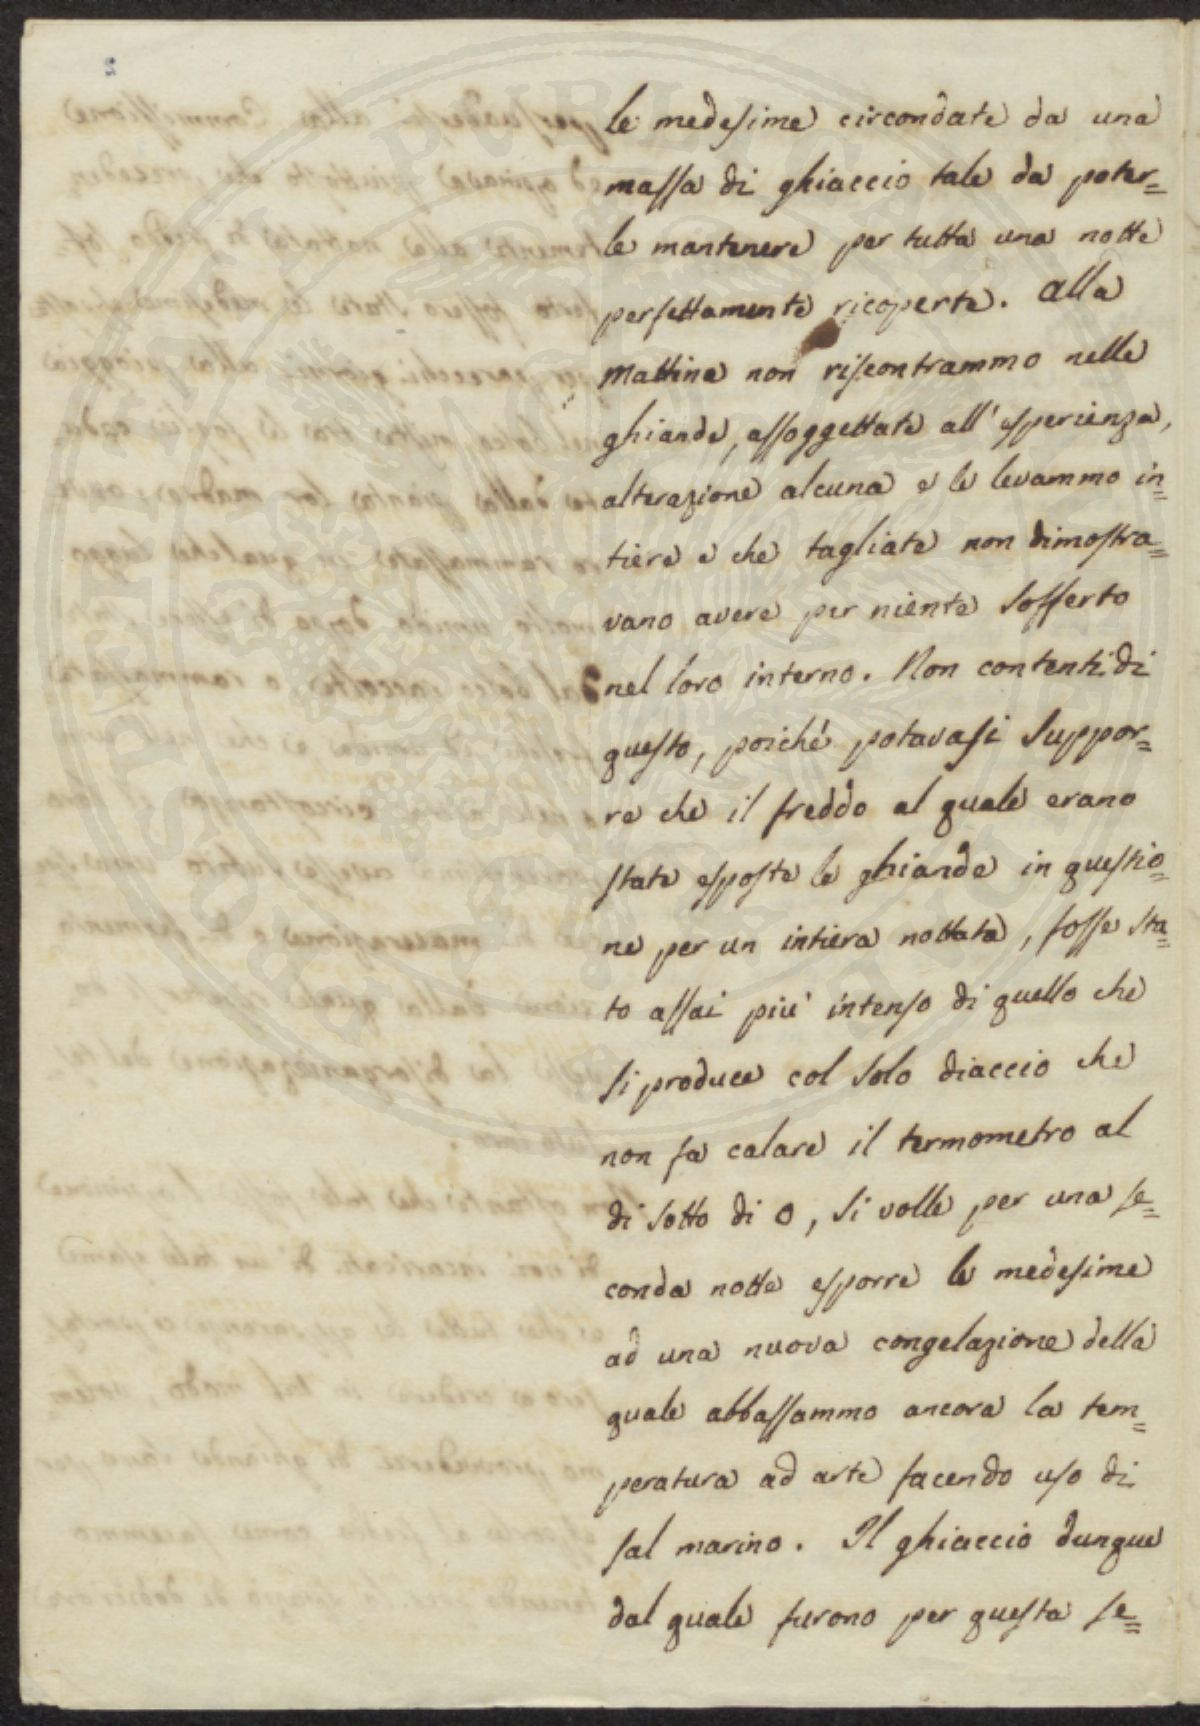 le medesime circondate da una
massa di ghiaccio tale da poter=
le mantenere per tutta una notte
perfettamente ricoperte. Alla
mattina non riscontrammo nelle
ghiande, assoggettate all'esperienza,
alterazione alcuna e le levammo in=
tiere e che tagliate non dimostra=
vano avere per niente sofferto
nel loro interno. Non contenti di
questo, poiché potavasi suppor=
re che il freddo al quale erano
state esposte le ghiande in questio=
ne per un intiera nottata, fosse sta=
to assai più intenso di quello che
si produce col solo diaccio che
non fa calare il termometro al
di sotto di 0, si volle per una se=
conda notte esporre le medesime
ad una nuova congelazione della
quale abbassammo ancora la tem=
peratura ad arte facendo uso di
sal marino. Il ghiaccio dunque
dal quale furono per questa se=